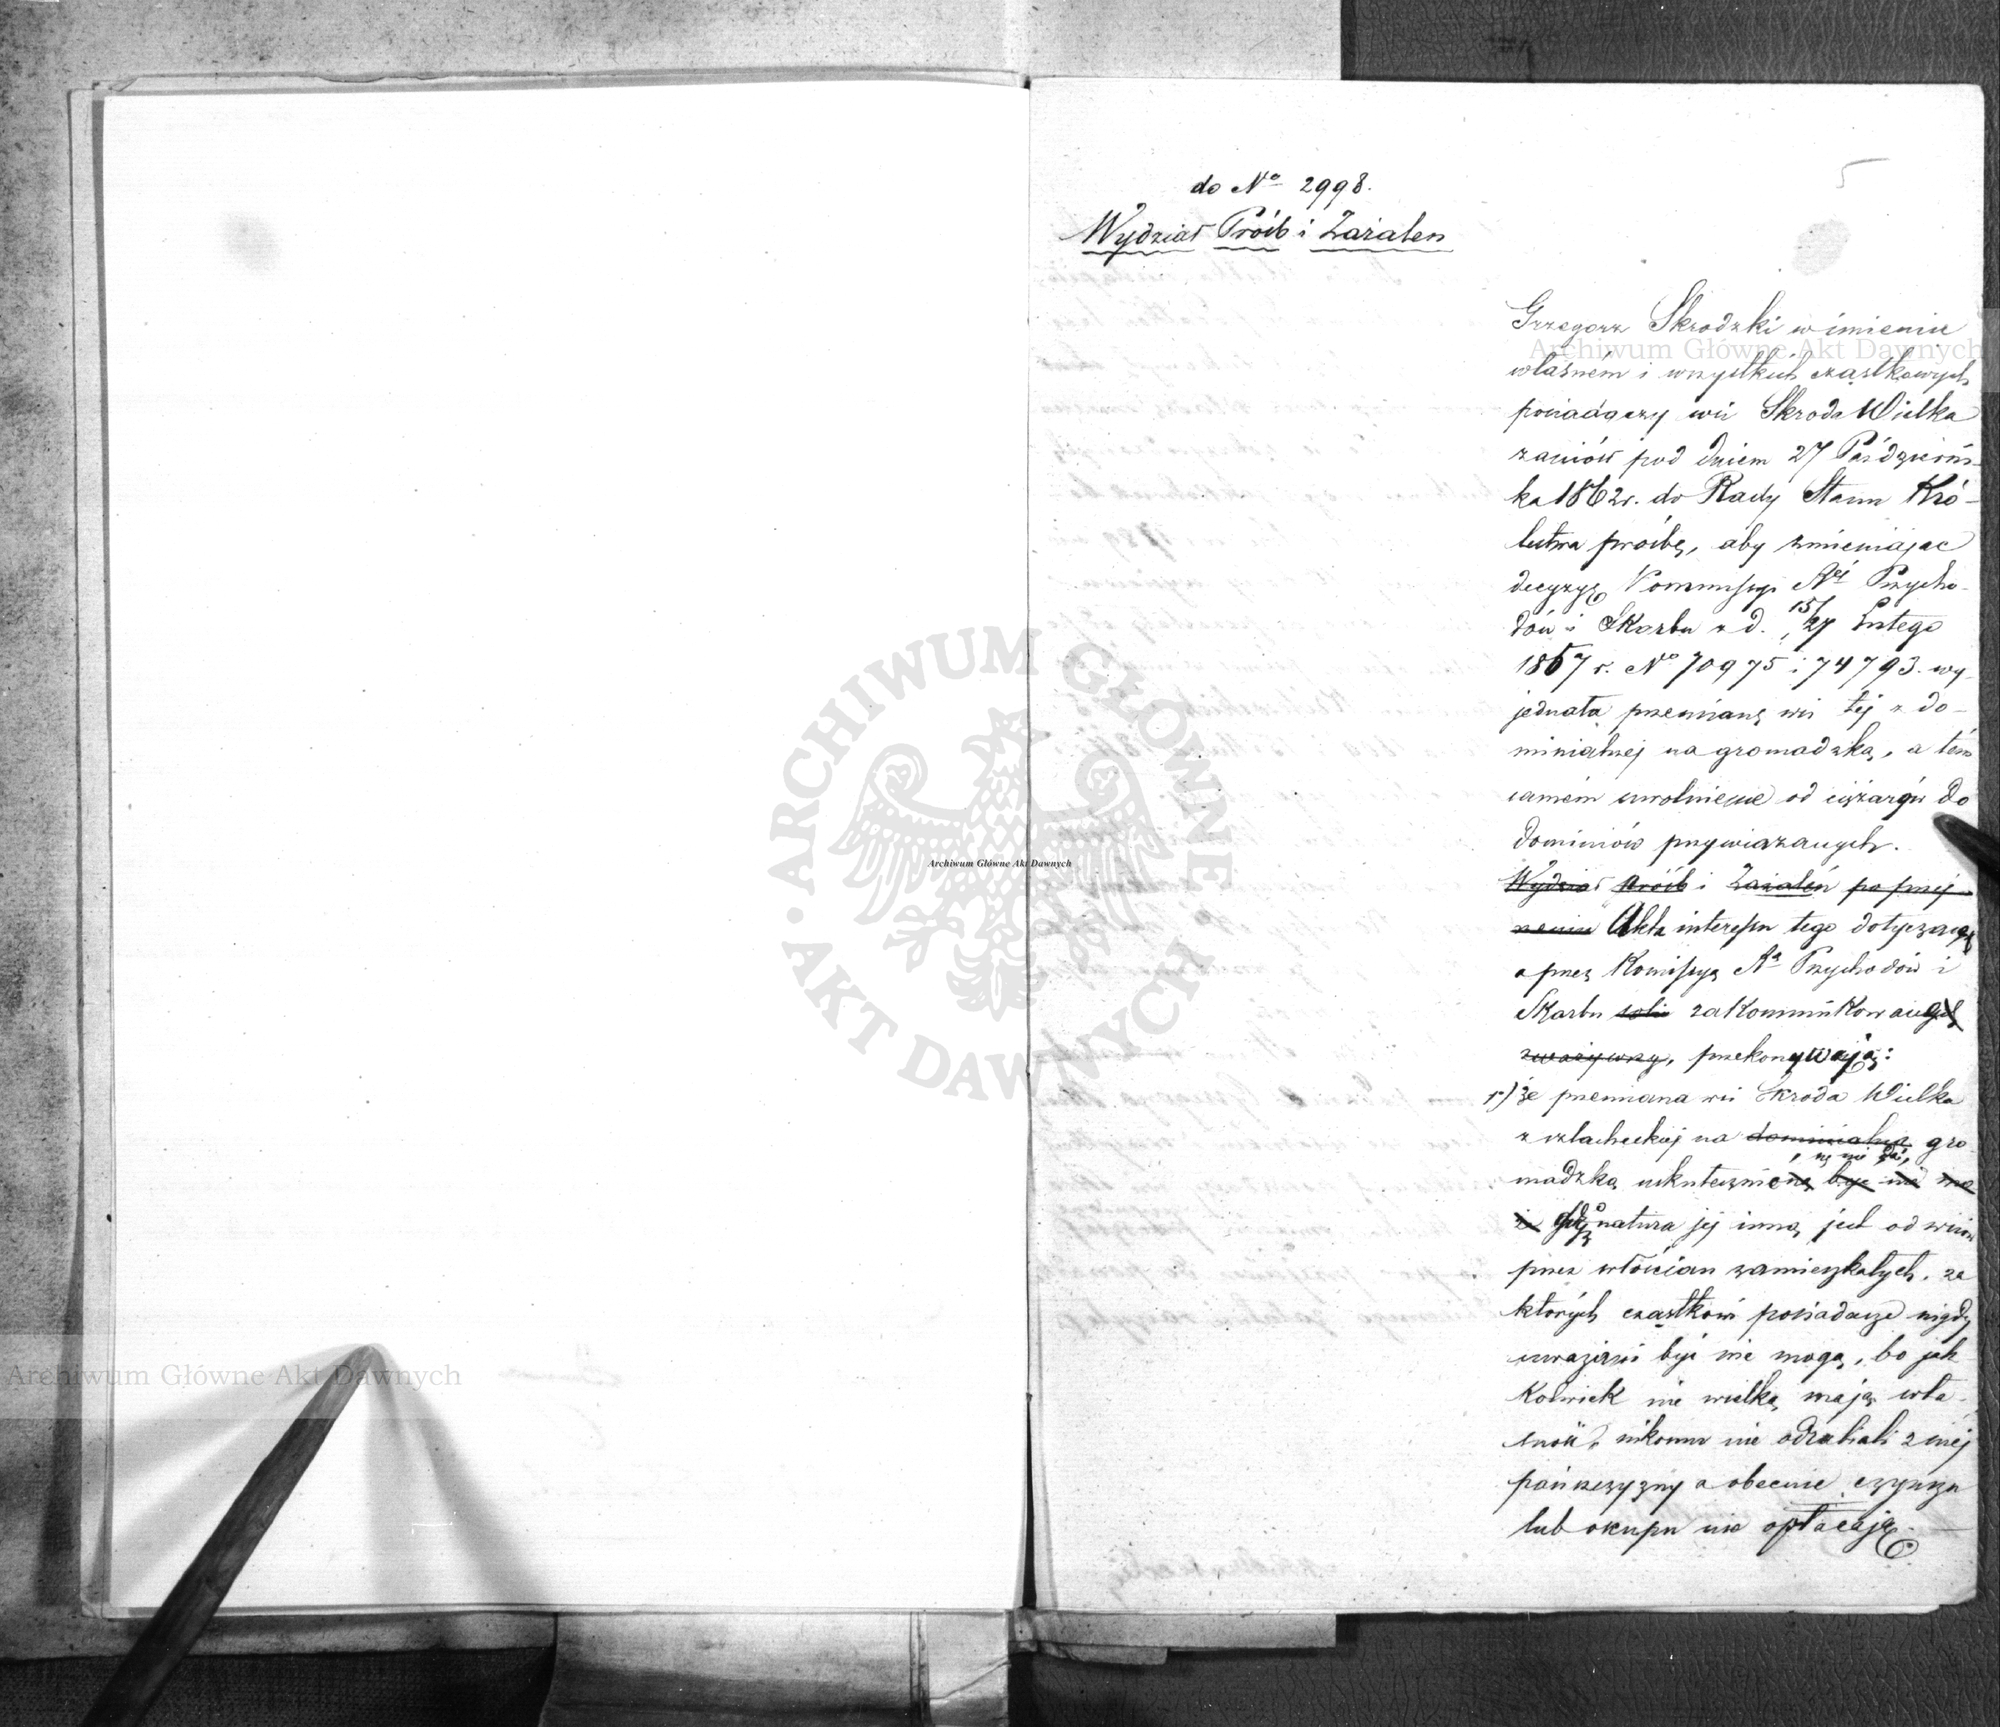 5
do No 2998.
Wydział Próśb i Zażaleń
Grzegorz Skrodzki w imieniu
własném i wszystkich cząstkowych
posiadaczy wsi Skroda Wielka
zaniósł pod dniem 27 Październi-
ka 1862 r. do Rady Stanu Kró-
lestwa prośbę, aby zmieniając
decyzyę Kommissyi Rei Przycho-
dów i Skarbu z d. 15/27 Lutego
1857 r. No 70975 i 74793. wy-
jednała przemianę wsi tej z do-
minialnej na gromadzką, a tém
samém uwolnienie od ciężarów do
dominiów przywiązanych.
Wydział Próśb i Zażaleń po przej
rzeniu Akta interessu tego dotyczące
a przez Komissyą Ra Przychodów i
Skarbu sobie zakommunikowane
zważywszy, przekonywają:
1o) że przemiana wsi Skroda Wielka
z szlacheckiej na dominialną gro
madzką uskutecznioną być nie mo
że gdyż natura jej inną jest od wsiów
przez włościan zamieszkałych, za
których cząstkowi posiadacze nigdy
uważani być nie mogą, bo jak
kolwiek nie wielką mają wła-
sność, nikomu nie odrabiali z niej
pańszczyzny a obecnie czynszu
lub okupu nie opłacają.
Archiwum Główne Akt Dawnych
Archiwum Główne Akt Dawnych
Archiwum Główne Akt Dawnych
ARCHIWUM GŁÓWNE AKT DAWNYCH